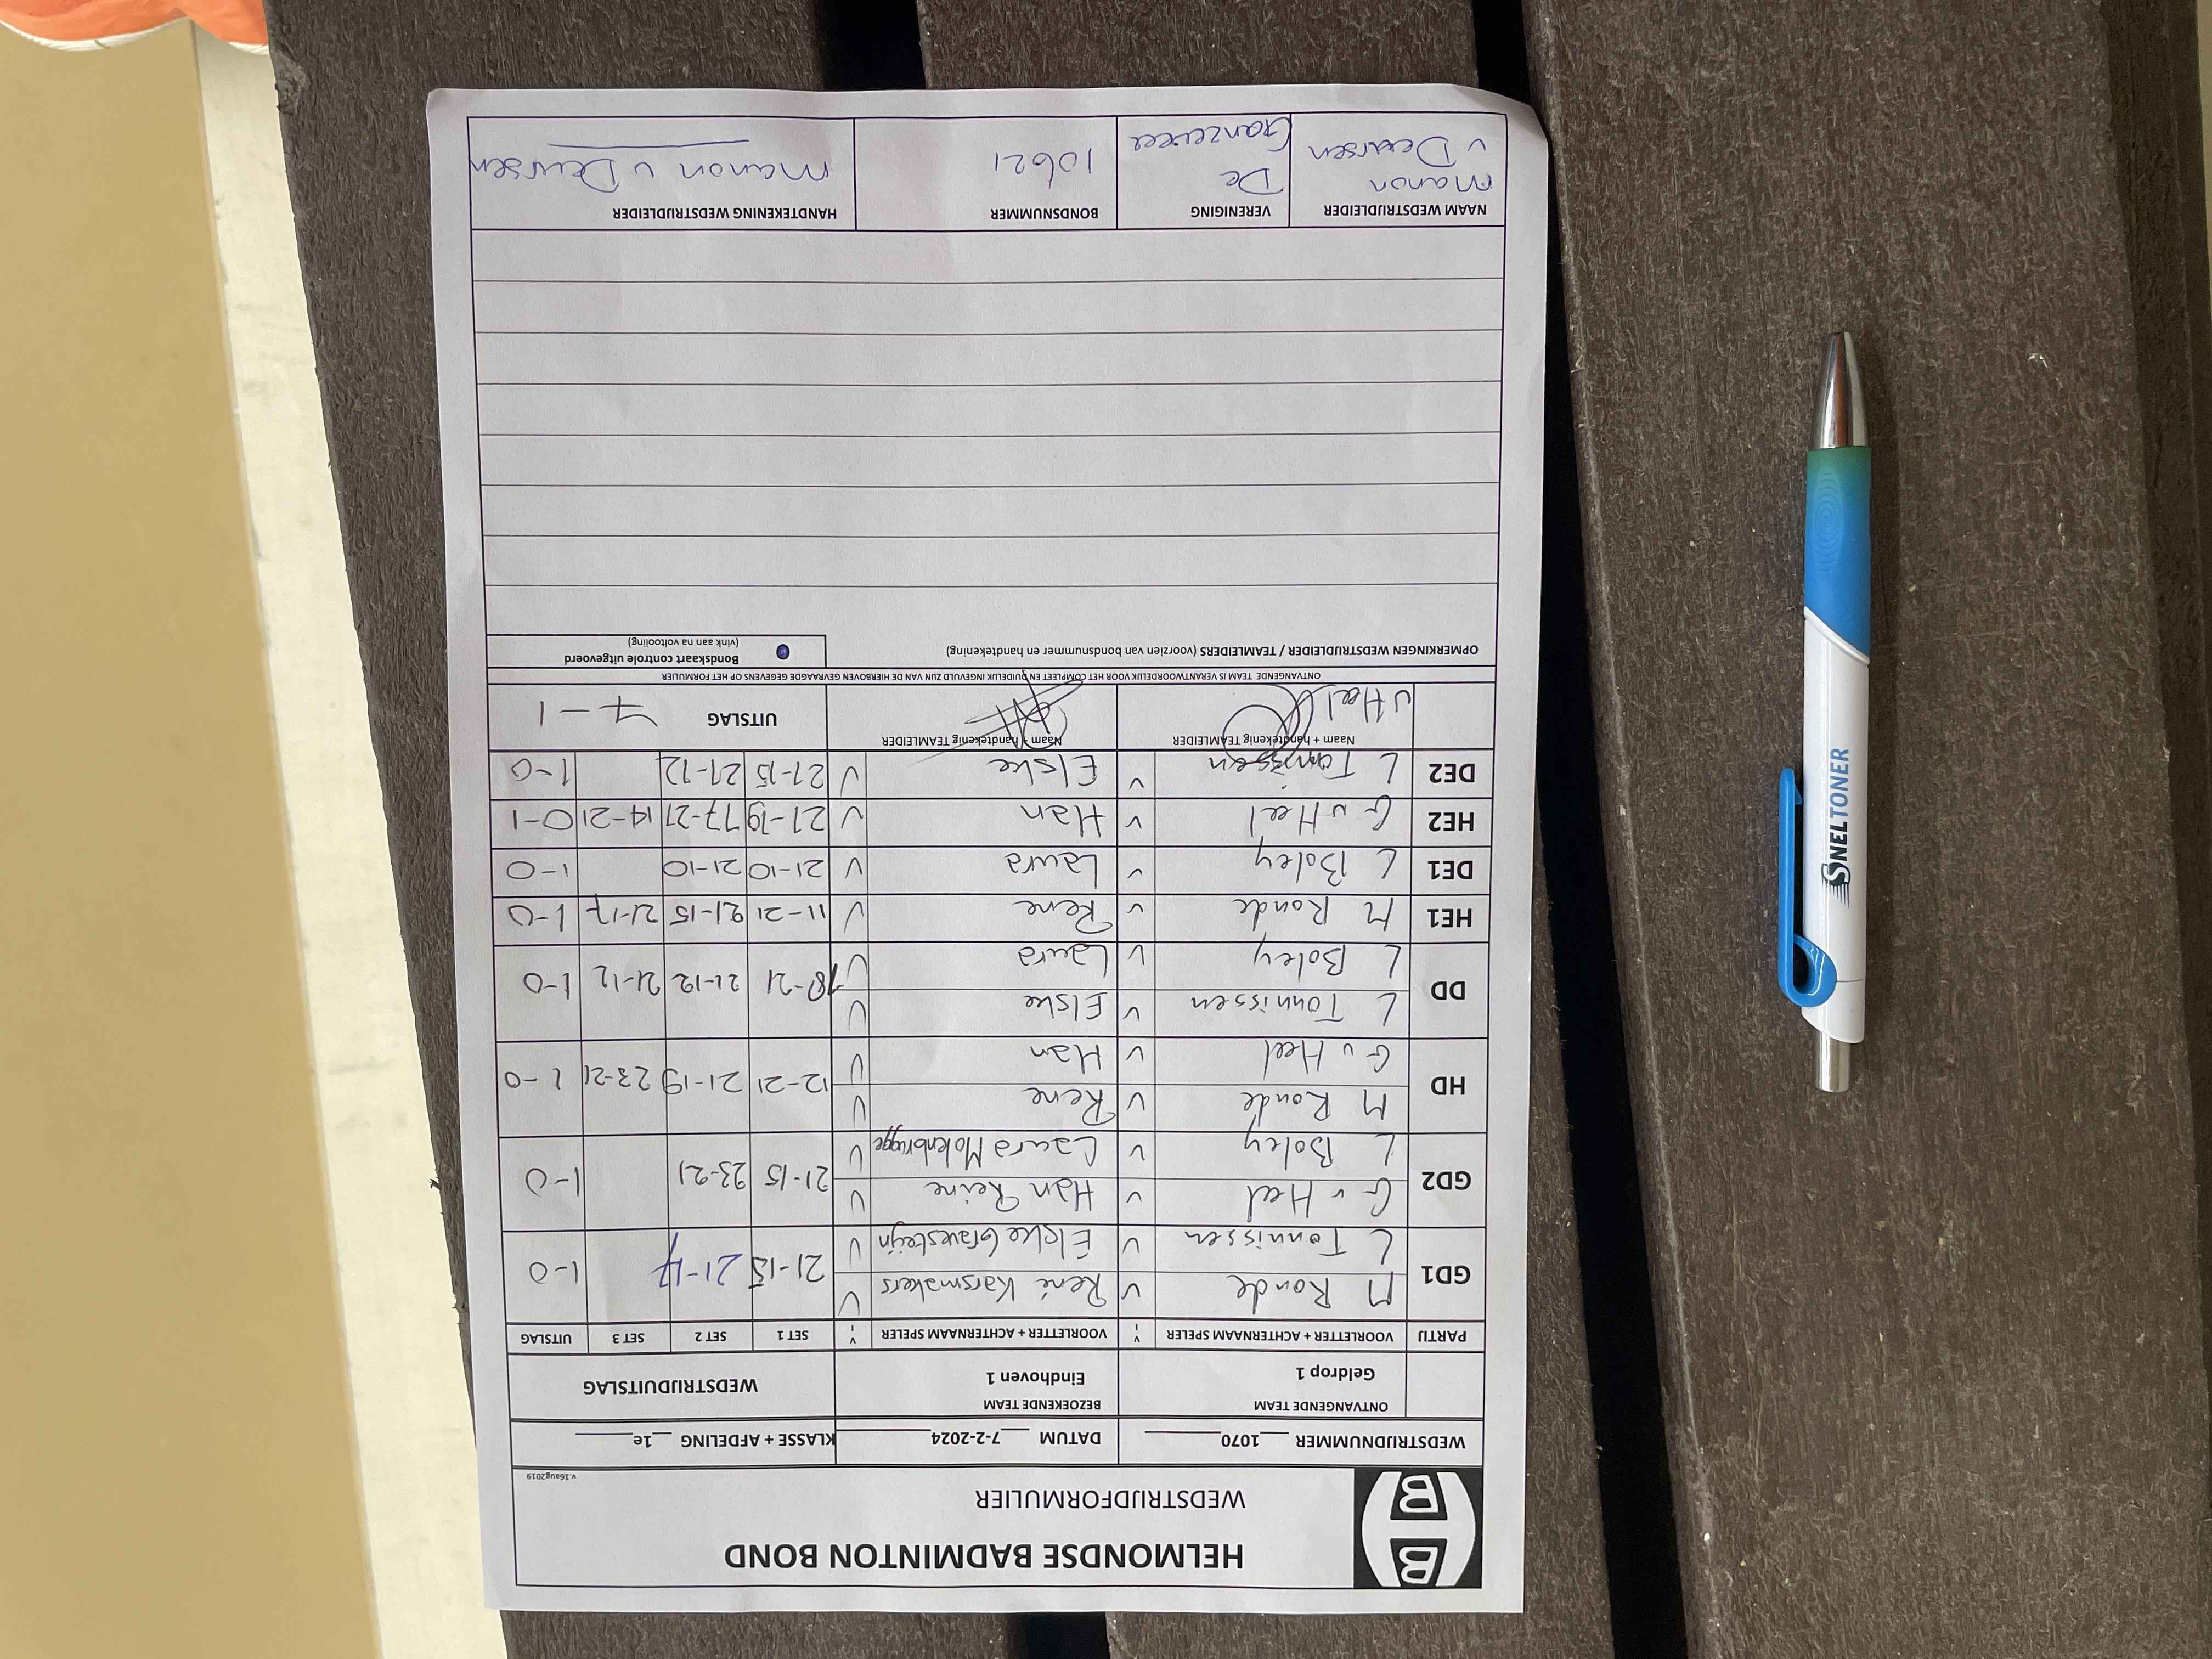 HELMONDSE BADMINTON BOND
WEDSTRIJDFORMULIER
v.16aug2019
WEDSTRIJDNUMMER 1070 DATUM 7-2-2024 KLASSE + AFDELING 1e
ONTVANGENDE TEAM BEZOEKENDE TEAM WEDSTRIJDUITSLAG
Geldrop 1 Eindhoven 1
PARTIJ VOORLETTER + ACHTERNAAM SPELER v - VOORLETTER + ACHTERNAAM SPELER v - SET 1 SET 2 SET 3 UITSLAG
GD1 M Ronde v René Karsmakers v 21-15 21-17 1-0
L Tonnissen v Elske Gravesteijn v
GD2 G v Heel v Han Reine v 21-15 23-21 1-0
L Boley v Laura Molenbrugge v
HD M Ronde v Rene v 12-21 21-19 23-21 1-0
G v Heel v Han v
DD L Tonnissen v Elske v 18-21 21-12 21-12 1-0
L Boley v Laura v
HE1 M Ronde v Rene v 11-21 21-15 21-17 1-0
DE1 L Boley v Laura v 21-10 21-10 1-0
HE2 G v Heel v Han v 21-19 17-21 14-21 0-1
DE2 L Tonnissen v Elske v 21-15 21-12 1-0
Naam + handtekenig TEAMLEIDER Naam + handtekenig TEAMLEIDER UITSLAG 7-1
v Heel
ONTVANGENDE TEAM IS VERANTWOORDELIJK VOOR HET COMPLEET EN DUIDELIJK INGEVULD ZIJN VAN DE HIERBOVEN GEVRAAGDE GEGEVENS OP HET FORMULIER
OPMERKINGEN WEDSTRIJDLEIDER / TEAMLEIDERS (voorzien van bondsnummer en handtekening)
Bondskaart controle uitgevoerd
(vink aan na voltooiing)
NAAM WEDSTRIJDLEIDER VERENIGING BONDSNUMMER HANDTEKENING WEDSTRIJDLEIDER
Manon De 10621 Manon v Deursen
v Deursen Ganzeveer
SNELTONER